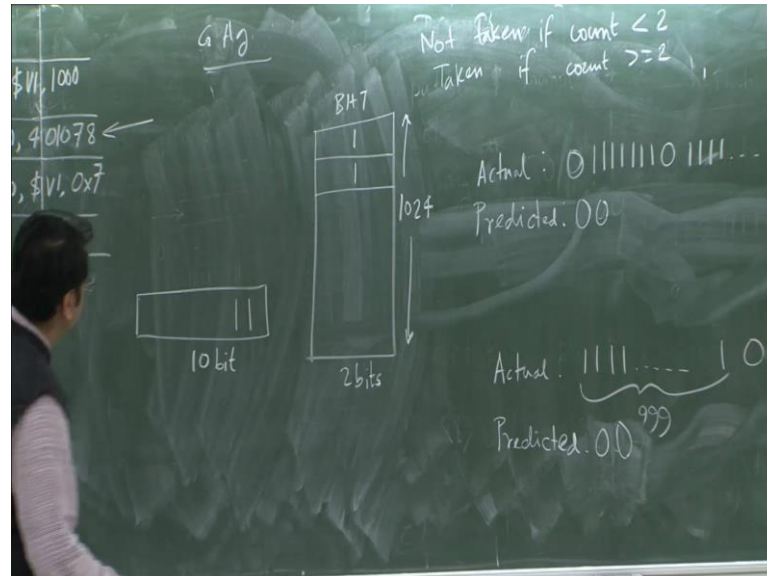 $V1, 1000
, 401078 ←
, $V1, 0x7
GAg
BHT
1
1
1024
2bits
11
10 bit
Not taken if count < 2
Taken if count >=2
Actual : 011111110 1111...
Predicted. 00
Actual : 1111..... 1 0
999
Predicted. 00